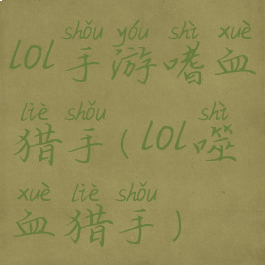 shǒu yóu shì xuè
lol手游嗜血
liè shǒu shì
猎手(lol噬
xuè liè shǒu
血猎手)